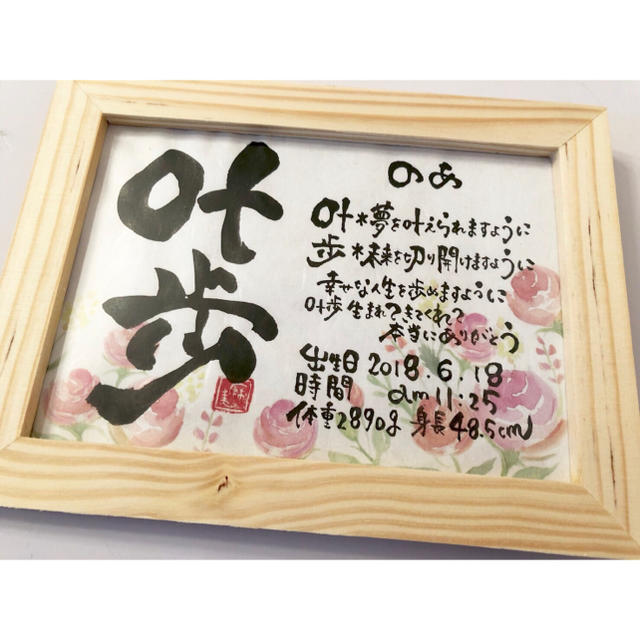 叶歩
のあ
叶*夢を叶えられますように
歩*未来を切り開けますように
幸せな人生を歩めますように
叶歩生まれてきてくれて
本当にありがとう
出生日 2018.6.18
時間 am11:25
体重2890g 身長48.5cm